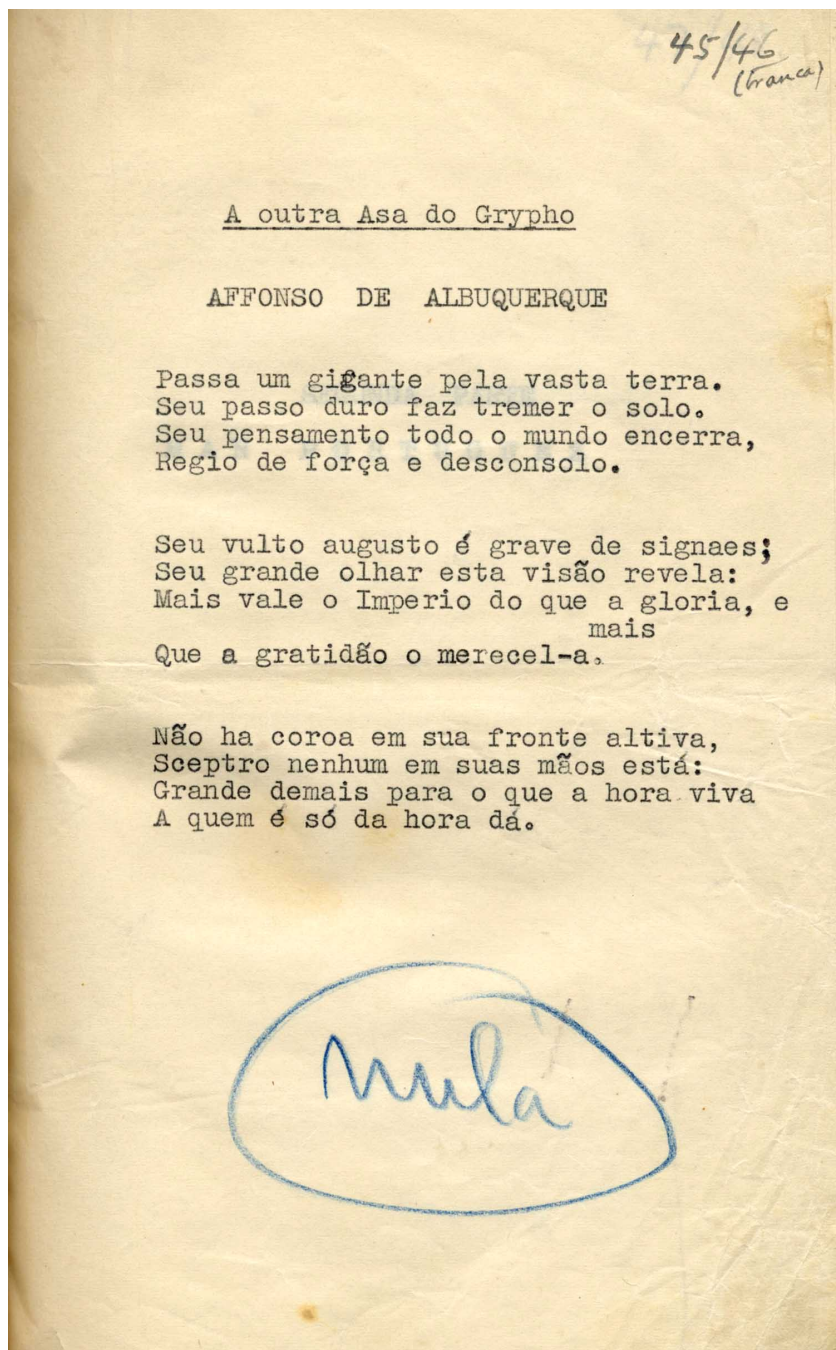 45/46
(branca)
A outra Asa do Grypho
AFFONSO DE ALBUQUERQUE
Passa um gigante pela vasta terra.
Seu passo duro faz tremer o solo.
Seu pensamento todo o mundo encerra,
Regio de força e desconsolo.
Seu vulto augusto é grave de signaes;
Seu grande olhar esta visão revela:
Mais vale o Imperio do que a gloria, e
mais
Que a gratidão o merecel-a.
Não ha coroa em sua fronte altiva,
Sceptro nenhum em suas mãos está:
Grande demais para o que a hora viva
A quem é só da hora dá.
nula